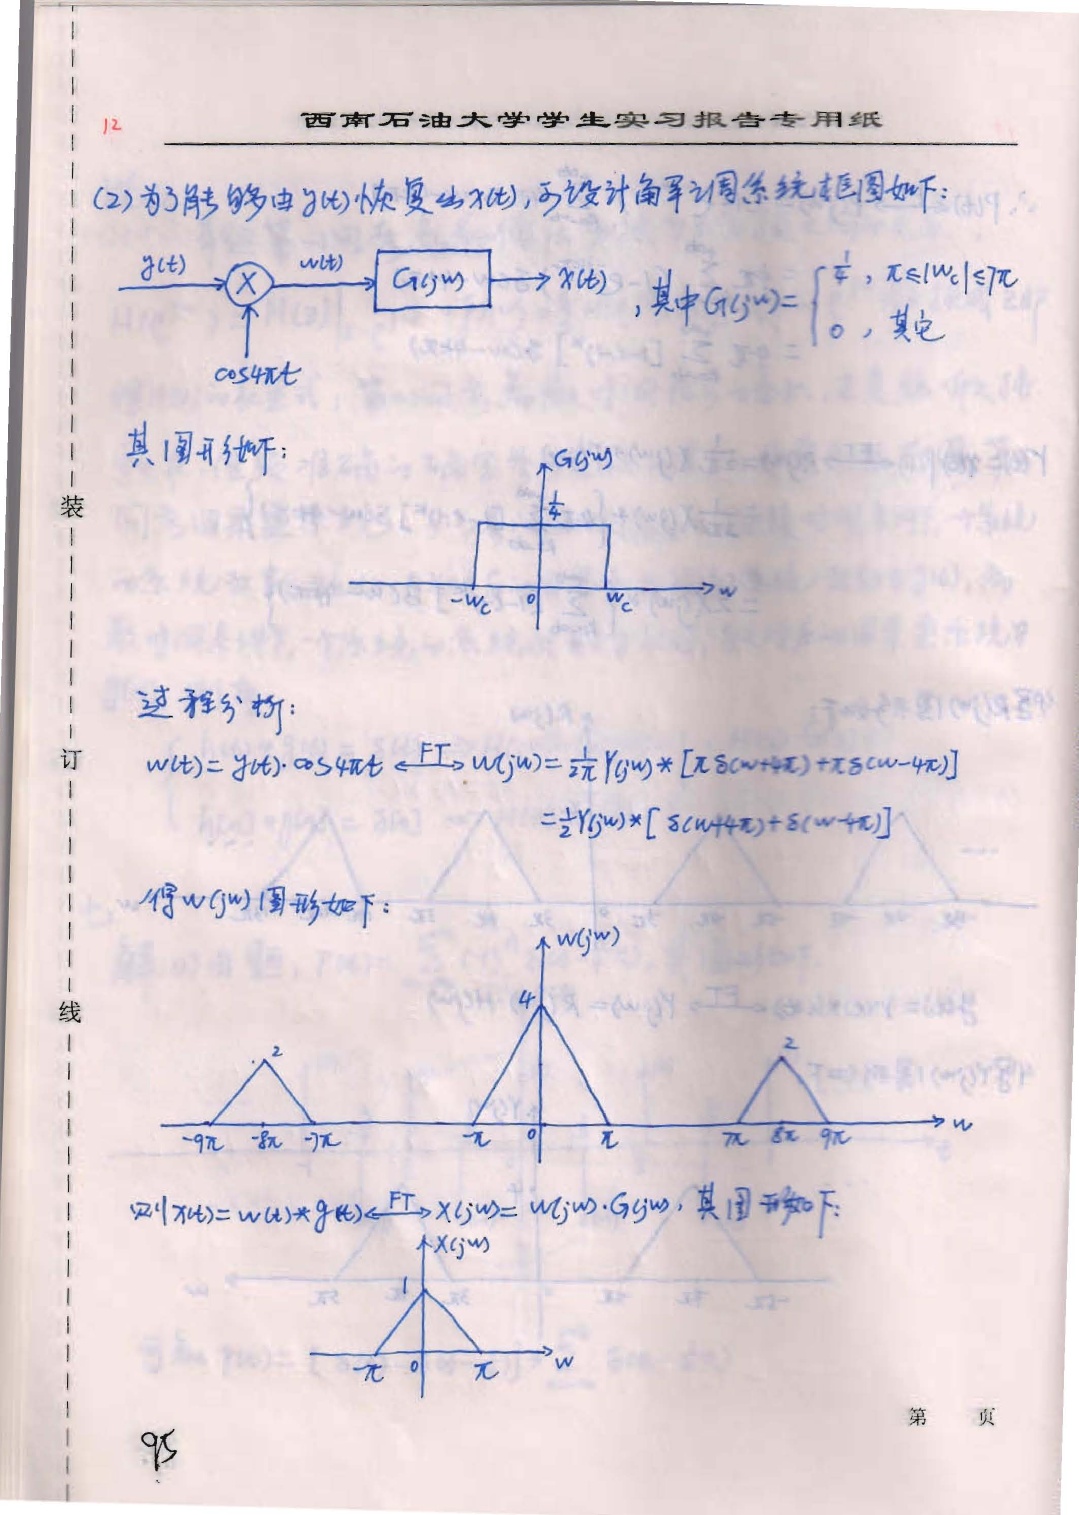 12
西南石油大学学生实习报告专用纸
(2)为了能够由y(t)恢复出x(t),可设计解调系统框图如下:
y(t) X w(t) G(jw) x(t)
cos4πt
,其中G(jw)= { 1/4 , π≤|Wc|≤7π
0 , 其它
其图形如下:
G(jw)
1/4
-Wc 0 Wc w
过程分析:
w(t)= y(t)·cos4πt ←FT→ W(jw)= 1/2π Y(jw)*[πδ(w+4π)+πδ(w-4π)]
=1/2 Y(jw)*[δ(w+4π)+δ(w-4π)]
得W(jw)图形如下:
W(jw)
4
2 2
-9π -8π -7π -π 0 π 7π 8π 9π w
则x(t)= w(t)*g(t) ←FT→ X(jw)= W(jw)·G(jw), 其图形如下:
X(jw)
1
-π 0 π w
装
订
线
第 页
95